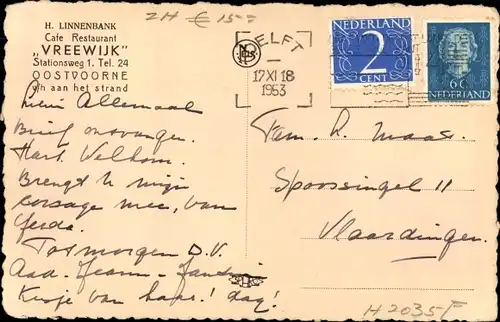 2H € 15=
H. LINNENBANK
Cafe Restaurant
„VREEWIJK”
Stationsweg 1. Tel. 24
OOSTVOORNE
aan het strand
DELFT
17 XI 18
1953
NEDERLAND
2
CENT
6c
NEDERLAND
Allemaal
Brief ontvangen.
Hart. Welkom.
Brengt U mijn
corsage mee, van
Gerda.
Tot morgen D.V.
Aad. Jeann-
Kusje van haar! dag!
Fam. L. Maas.
Spoorsingel 11
Vlaardingen.
H2035F